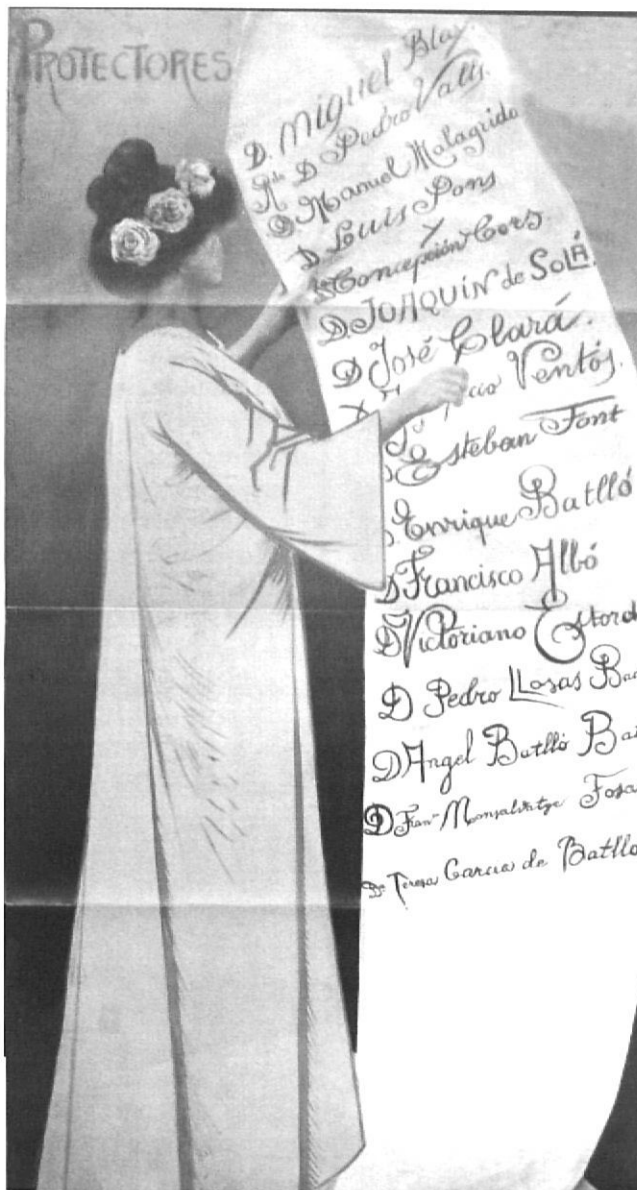 PROTECTORES
D. Miguel Blay
Rdo D Pedro Valls.
D. Manuel Malagrida
D. Luis Pons
y
Da Concepción Cors.
D. JOAQUÍN de SOLÁ.
D. José Clará.
Ventós.
Esteban Font
D. Enrique Batlló
D Francisco Albó
D Victoriano Estord
D Pedro Llosas Bad
D Angel Batlló Bat
D Fran- Monsalvatge Fosa
Da Teresa Garcia de Batlló